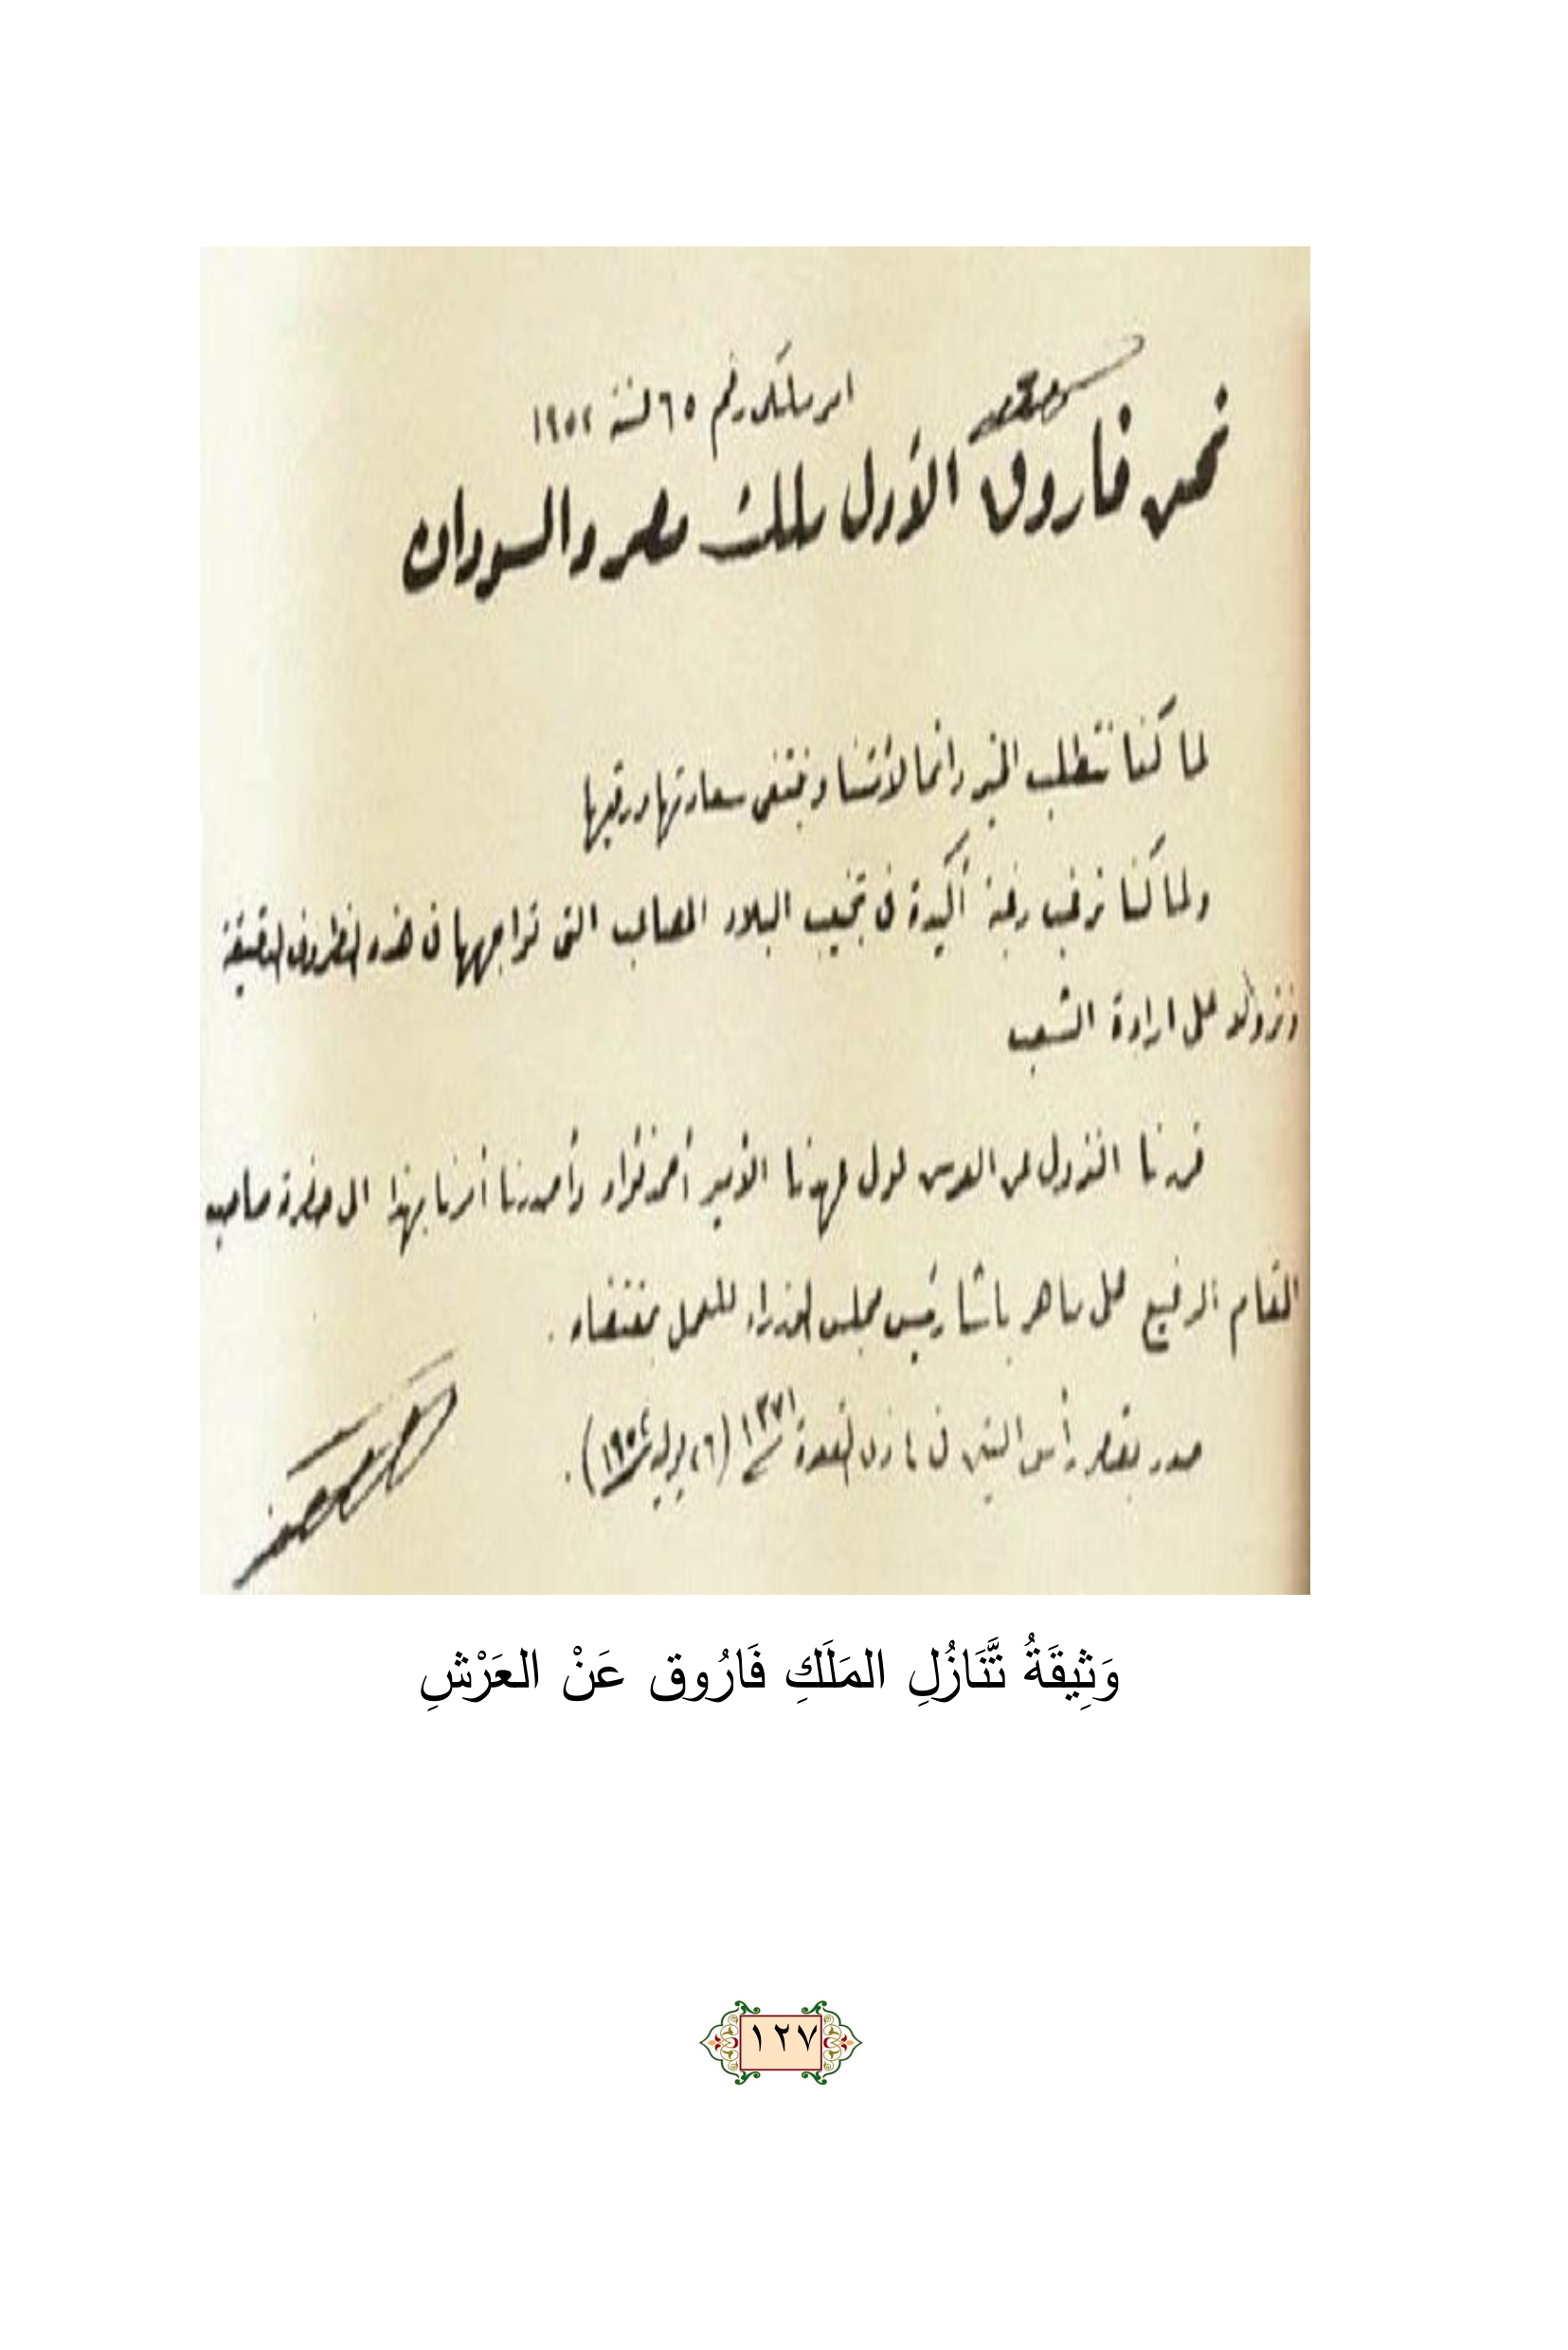 امر ملكى رقم ٦٥ لسنة ١٩٥٢
نحن فاروق الأول ملك مصر والسودان
لما كنا نتطلب الخير دائما لأمتنا ونبتغى سعادتها ورقيها
ولما كنا نرغب رغبة أكيدة فى تجنيب البلاد المصاعب التى تواجهها فى هذه الظروف الدقيقة
ونزولا على ارادة الشعب
قررنا النزول عن العرش لولى عهدنا الأمير أحمد فؤاد وأصدرنا أمرنا بهذا الى حضرة صاحب
المقام الرفيع على ماهر باشا رئيس مجلس الوزراء للعمل بمقتضاه .
صدر بقصر رأس التين فى ٤ ذى القعدة ١٣٧١ (٢٦ يوليه ١٩٥٢) .
وَثِيقَةُ تَّنَازُلِ المَلَكِ فَارُوق عَنْ العَرْشِ
١٢٧